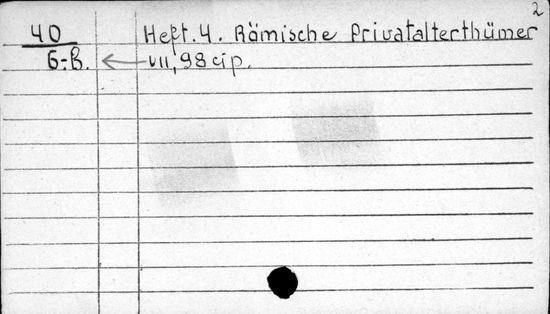 2
40 Heft. 4. Römische Privatalterthümer
6-B. ← VII, 98 cip.